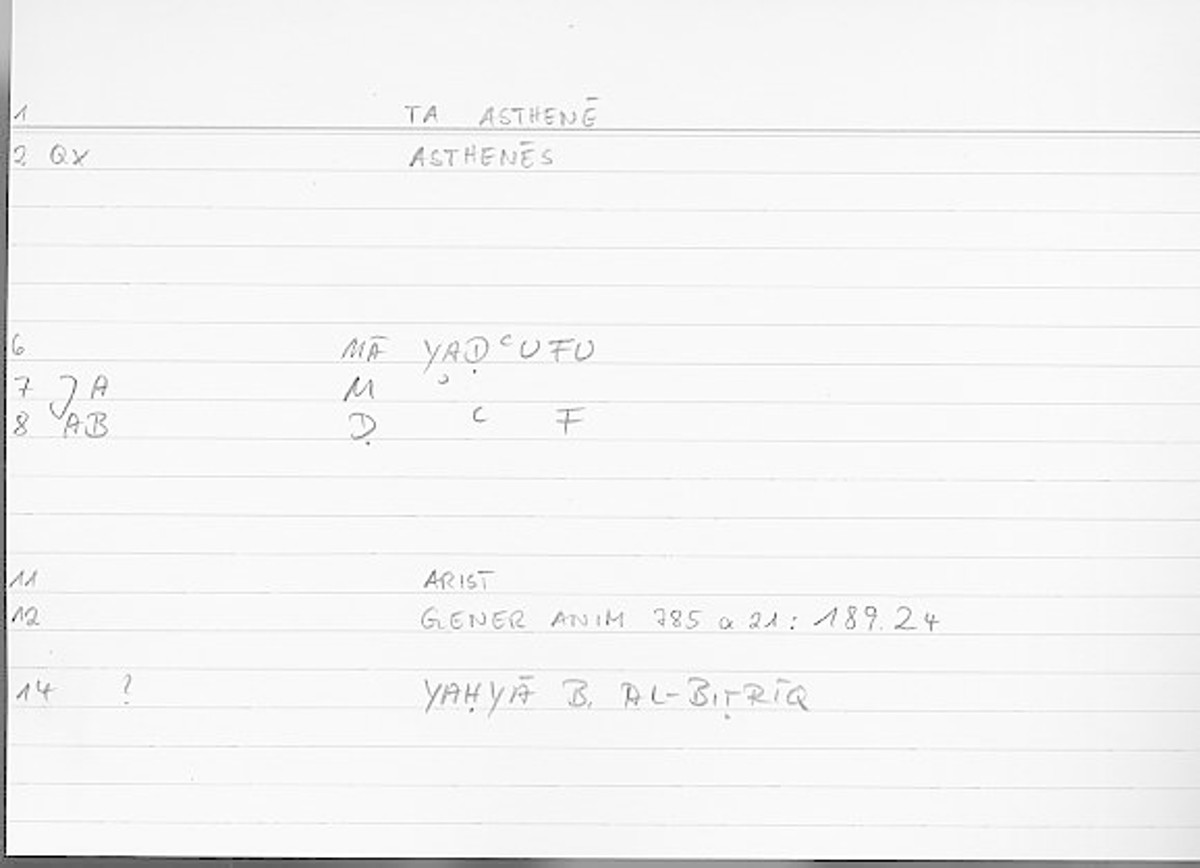 1 TA ASTHENĒ
2 QX ASTHENĒS
6 MĀ YAḌʿUFU
7 A M
8 AB Ḍ ʿ F
11 ARIST
12 GENER ANIM 785 a 21 : 189.24
14 ? YAḤYĀ B. AL-BIṬRĪQ